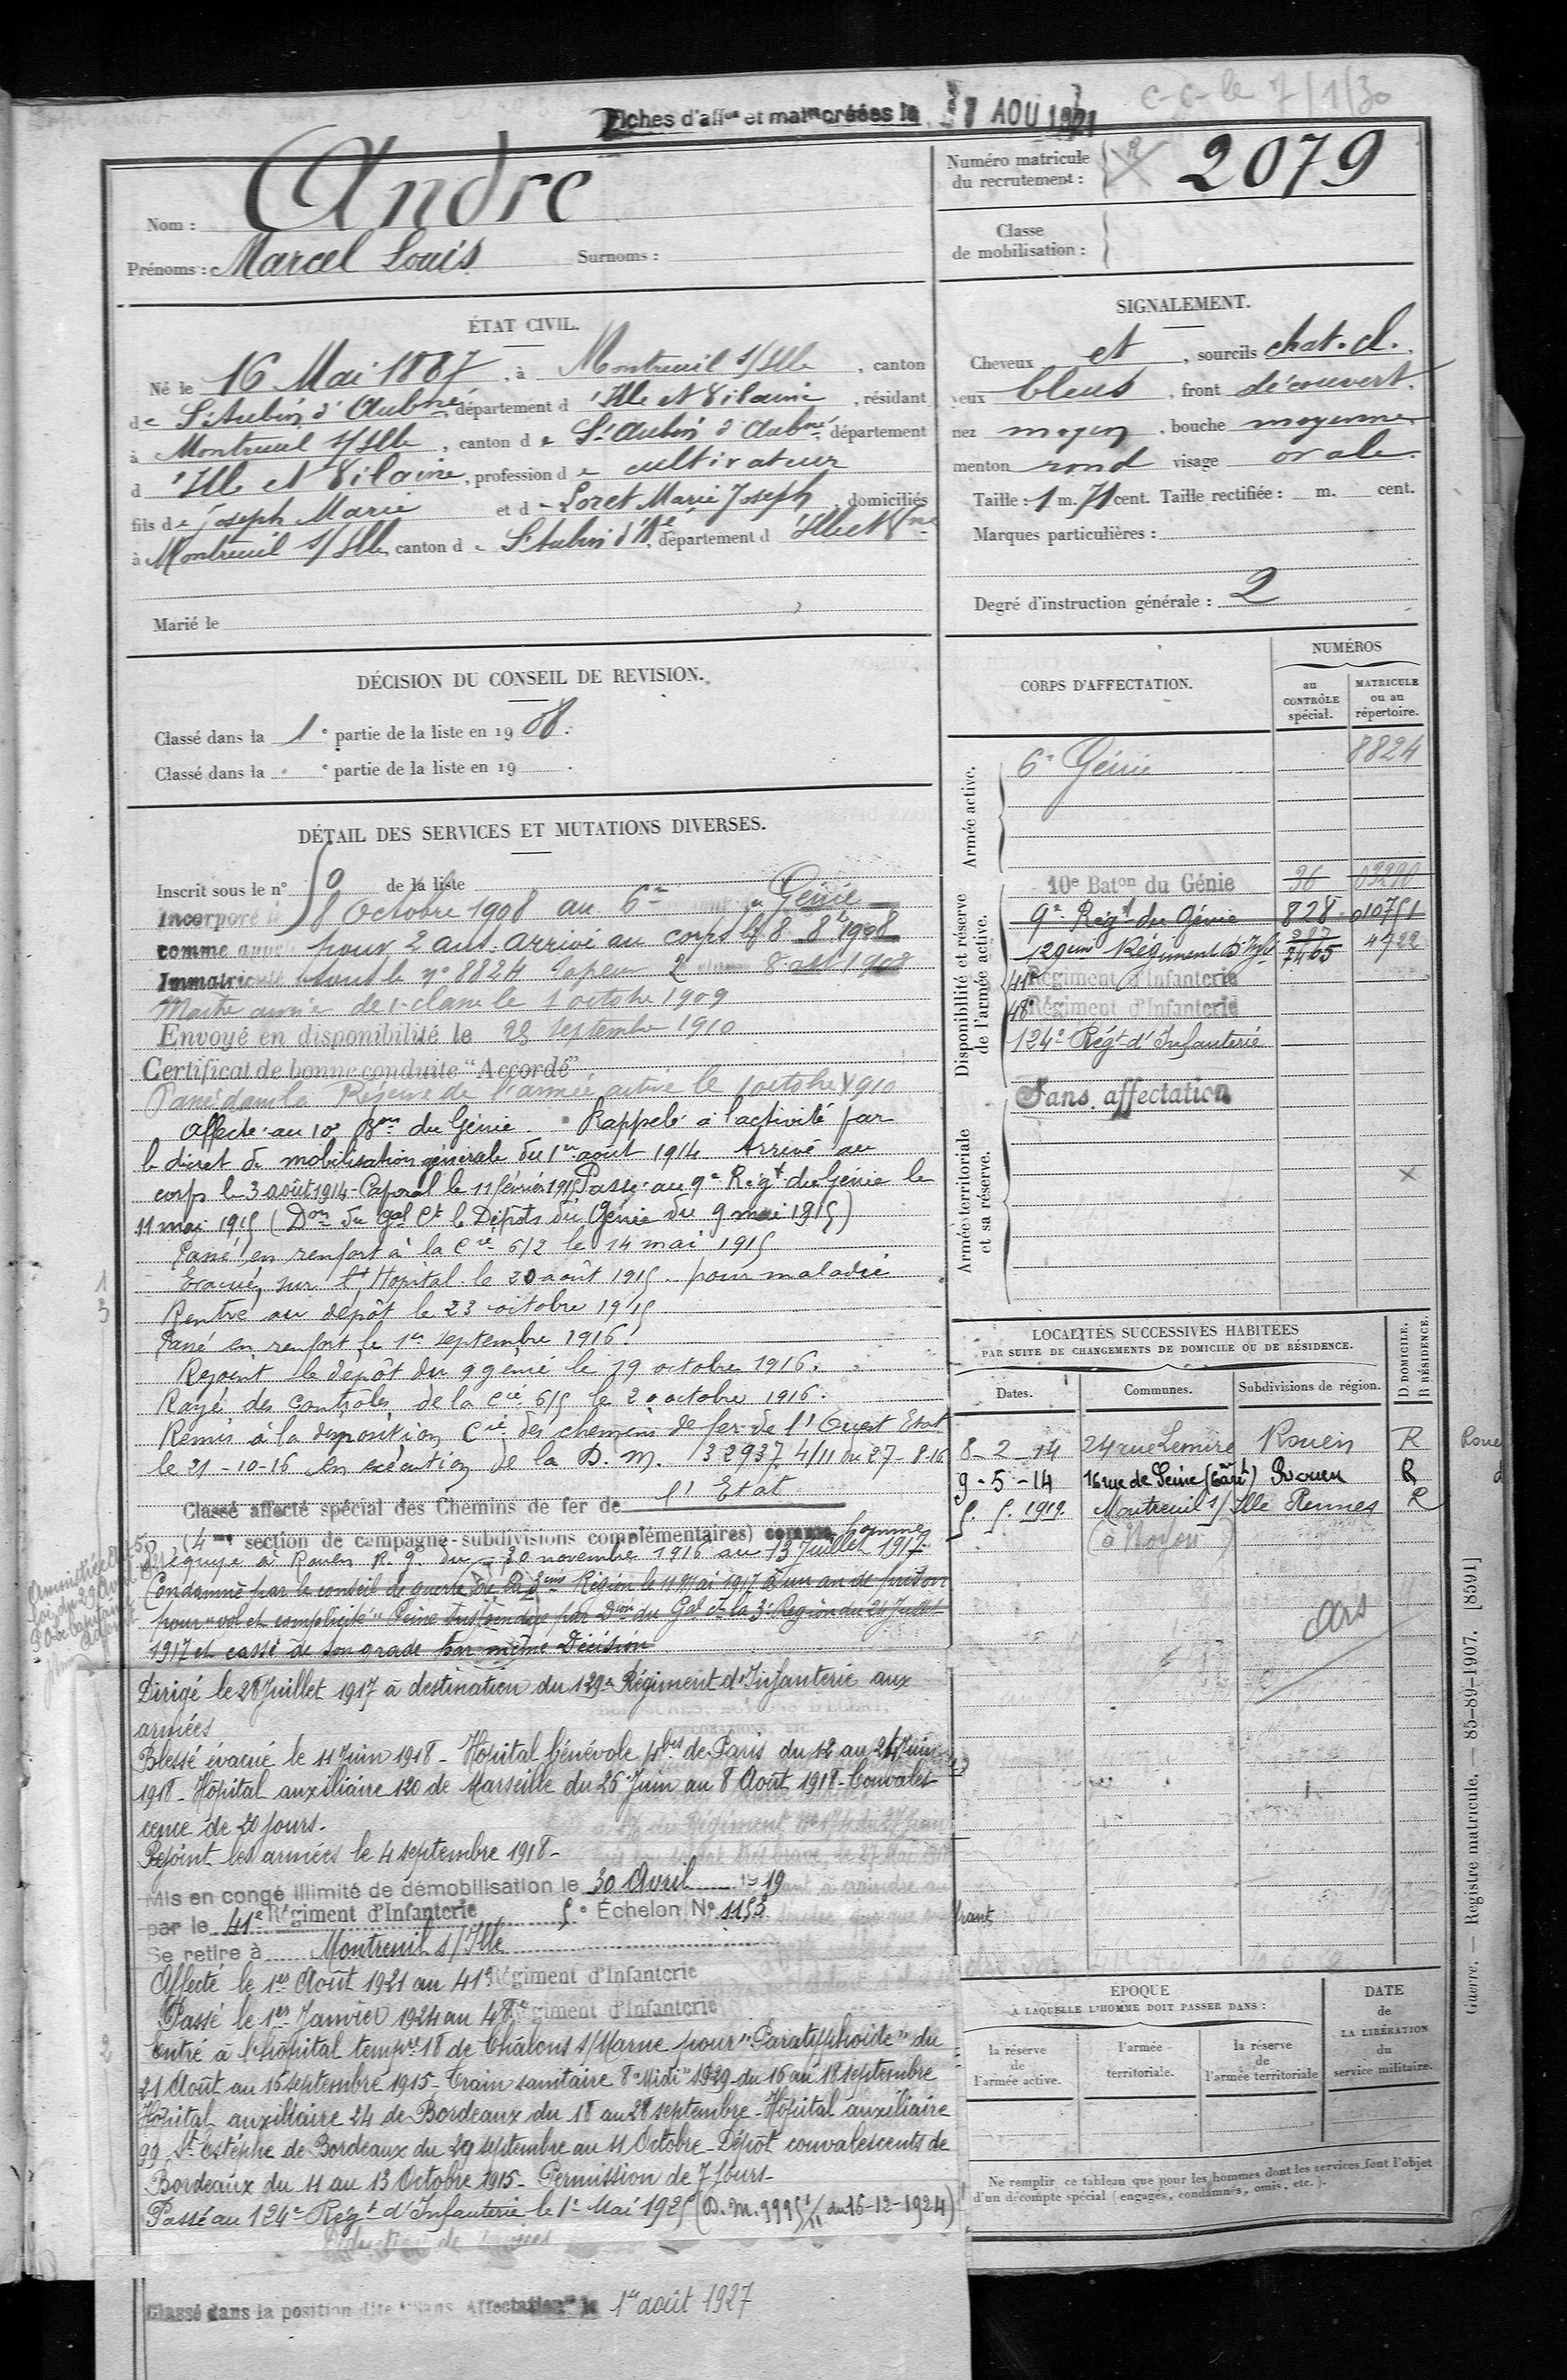 Fiches d'affon et matricréées le 8 AOU 1921
C-C- le 7/1/30
Nom : André
Prénoms : Marcel Louis Surnoms :
Numéro matricule du recrutement : 2079
Classe de mobilisation :
ÉTAT CIVIL.
Né le 16 Mai 1887, à Montreuil s/Ille, canton
de St Aubin d'Aubné, département d'Ille et Vilaine, résidant
à Montreuil s/Ille, canton de St Aubin d'Aubné département
d'Ille et Vilaine, profession de cultivateur
fils de Joseph Marie et de Loret Marie Joseph, domiciliés
à Montreuil s/Ille, canton de St Aubin d'A., département d'Ille et Vne
Marié le
SIGNALEMENT.
Cheveux et, sourcils chat. cl.
yeux bleus, front découvert.
nez moyen, bouche moyenne
menton rond visage ovale.
Taille : 1 m. 71 cent. Taille rectifiée : m. cent.
Marques particulières :
Degré d'instruction générale : 2
DÉCISION DU CONSEIL DE REVISION.
Classé dans la 1e partie de la liste en 1908.
Classé dans la e partie de la liste en 19 .
DÉTAIL DES SERVICES ET MUTATIONS DIVERSES.
Inscrit sous le n° de la liste
Incorporé le 8 Octobre 1908 au 6e Génie
comme appelé pour 2 ans. arrivé au corps le 8 8bre 1908
Immatriculé sous le n° 8824 sapeur 2 classe 8 oct 1908
Maître ouvrier de 1e classe le 1 octobre 1909
Envoyé en disponibilité le 25 septembre 1910
Certificat de bonne conduite "Accordé"
Passé dans la Réserve de l'armée active le 1 octobre 1910
Affecté au 10e Bon du Génie. Rappelé à l'activité par
le décret de mobilisation générale du 1er août 1914 Arrivé au
corps le 3 août 1914 - Caporal le 11 février 1915 Passé au 9e Régt du Génie le
11 mai 1915 (Don du Gal Ct le Dépôts du Génie du 9 mai 1915)
Passé en renfort à la Cie 6/2 le 14 mai 1915
Evacué sur l'Hopital le 20 août 1915. pour maladie
Rentré au dépôt le 23 octobre 1915
Passé en renfort le 1er septembre 1916.
Rejoint le dépôt du 9 génie le 19 octobre 1916.
Rayé des contrôles de la Cie 6/5 le 20 octobre 1916.
Remis à la disposition Cie des chemins de fer de l'Ouest Etat
le 21-10-16 en exécution de la D.M. 32937 4/11 du 27-8-16
Classé affecté spécial des Chemins de fer de l'Etat
(4me section de campagne - subdivisions complémentaires) comme homme
d'équipe à Rouen R.g. du 30 novembre 1916 au 13 Juillet 1917.
Condamné par le conseil de guerre de la 3eme Région le 11 Mai 1917 à un an de prison
pour "vol et complicité" Peine suspendue par Dion du Gal Ct la 3e Region du 24 Juillet
1917 et cassé de son grade par même Décision
Dirigé le 28 Juillet 1917 à destination du 129e Régiment d'Infanterie aux
armées
Blessé évacué le 11 Juin 1918 - Hôpital bénévole 4 bis de Paris du 12 au 24 Juin
1918 - Hôpital auxiliaire 120 de Marseille du 26 Juin au 8 Août 1918 - Convales
cence de 20 jours.
Rejoint les armées le 4 septembre 1918 -
Mis en congé illimité de démobilisation le 30 Avril 1919
par le 41e Régiment d'Infanterie 5e Échelon N° 1153
Se retire à Montreuil s/Ille
Affecté le 1er Août 1921 au 41e Régiment d'Infanterie
Passé le 1er Janvier 1924 au 48e Régiment d'Infanterie
Entré à l'hôpital tempre 18 de Châlons s/Marne pour "Paratyphoïde" du
21 Août au 16 septembre 1915 - Train sanitaire 8 "Midi" du 16 au 18 septembre
Hôpital auxiliaire 24 de Bordeaux du 18 au 28 septembre - Hôpital auxiliaire
99 St Estèphe de Bordeaux du 29 septembre au 11 Octobre - Dépôt convalescents de
Bordeaux du 11 au 13 Octobre 1915 - Permission de 7 jours -
Passé au 124e Régt d'Infanterie le 1e Mai 1925 (D.M. 9995 1/11 du 16-12-1924)
Classé dans la position dite "Sans Affectation" le 1er août 1927
CORPS D'AFFECTATION.
NUMÉROS
au CONTRÔLE spécial.
MATRICULE ou au répertoire.
Armée active.
6e Génie 8824
Disponibilité et réserve de l'armée active.
10e Baton du Génie 36 03290
9e Régt du Génie 828 010751
129eme Régiment d'Infie 7465 4722
41e Régiment d'Infanterie
48e Régiment d'Infanterie
124e Régt d'Infanterie
Armée territoriale et sa réserve.
Sans affectation
LOCALITÉS SUCCESSIVES HABITÉES
PAR SUITE DE CHANGEMENTS DE DOMICILE OU DE RÉSIDENCE.
Dates. Communes. Subdivisions de région. D. DOMICILE. R. RÉSIDENCE.
8-2-14 24 rue Lemire Rouen R
9-5-14 16 rue de Seine Rouen R
5. 5. 1919. Montreuil s/Ille Rennes R
(à Noyon)
ars
ÉPOQUE
À LAQUELLE L'HOMME DOIT PASSER DANS :
la réserve de l'armée active.
l'armée territoriale.
la réserve de l'armée territoriale
DATE de LA LIBÉRATION du service militaire.
Ne remplir ce tableau que pour les hommes dont les services font l'objet
d'un décompte spécial (engagés, condamnés, omis, etc.).
Guerre. — Registre matricule. — 85-89-1907. [8591]